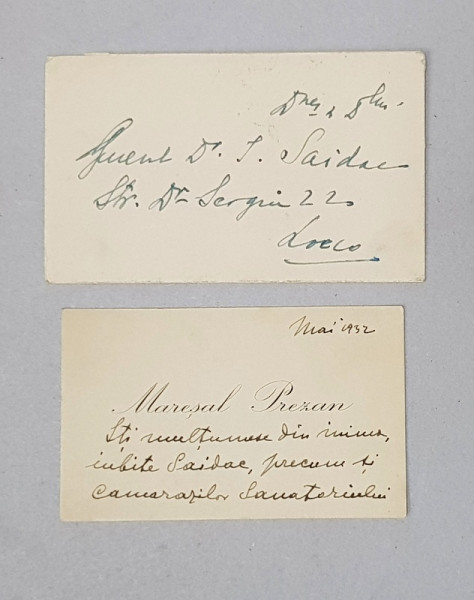 Dnei & Dlui
General Dr. I. Saidac
Str. Dr Sergiu 22
Loco
Mai 1932
Mareșal Prezan
Iți multumesc din inima,
iubite Saidac, precum și
camarazilor Sanatoriului